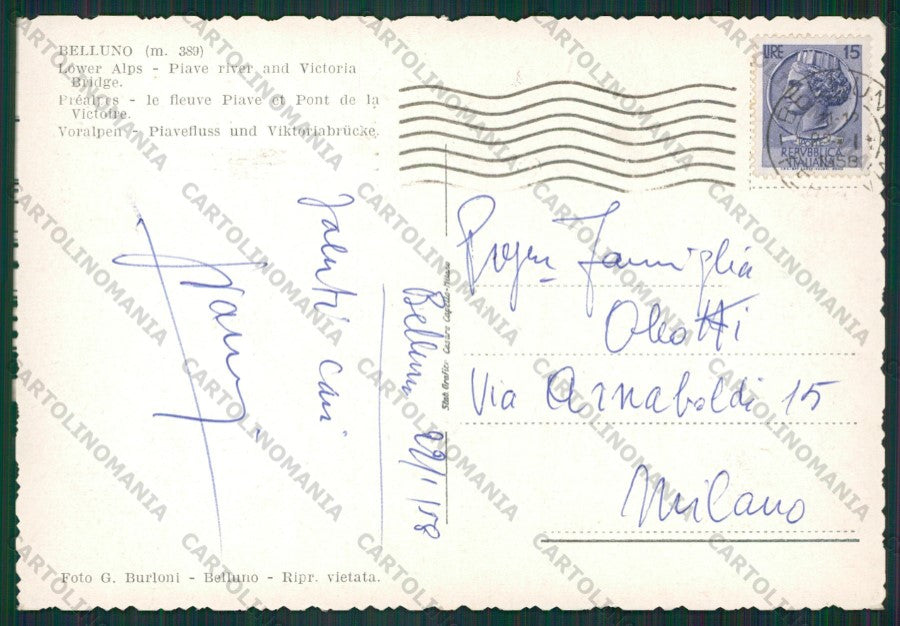 BELLUNO (m. 389)
Lower Alps - Piave river and Victoria
Bridge.
Préalpes - le fleuve Piave et Pont de la
Victoire.
Voralpen - Piavefluss und Viktoriabrücke.
LIRE 15
REPVBBLICA
ITALIANA
Saluti cari
Belluno 22/1/58
Stab. Grafico Cesare Capello - Milano
Famiglia
Via Arnaboldi 15
Milano
Foto G. Burloni - Belluno - Ripr. vietata.
CARTOLINOMANIA